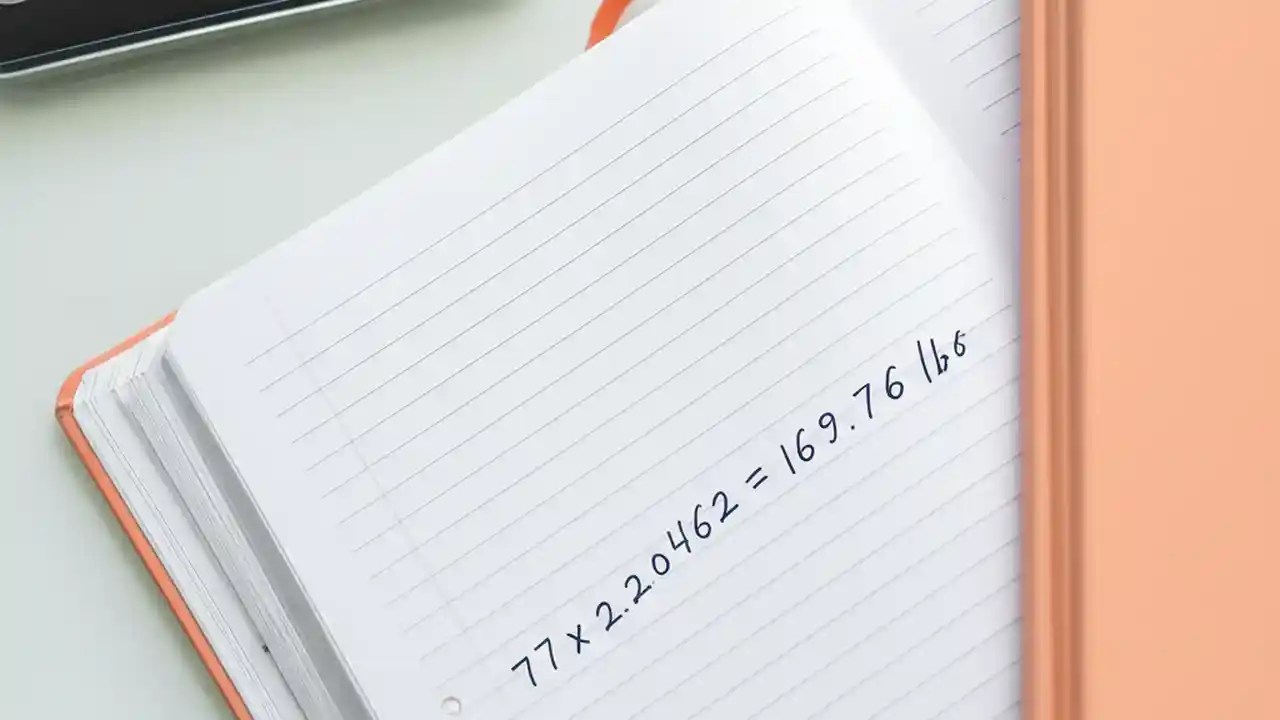 77 x 2.20462 = 169.76 lbs